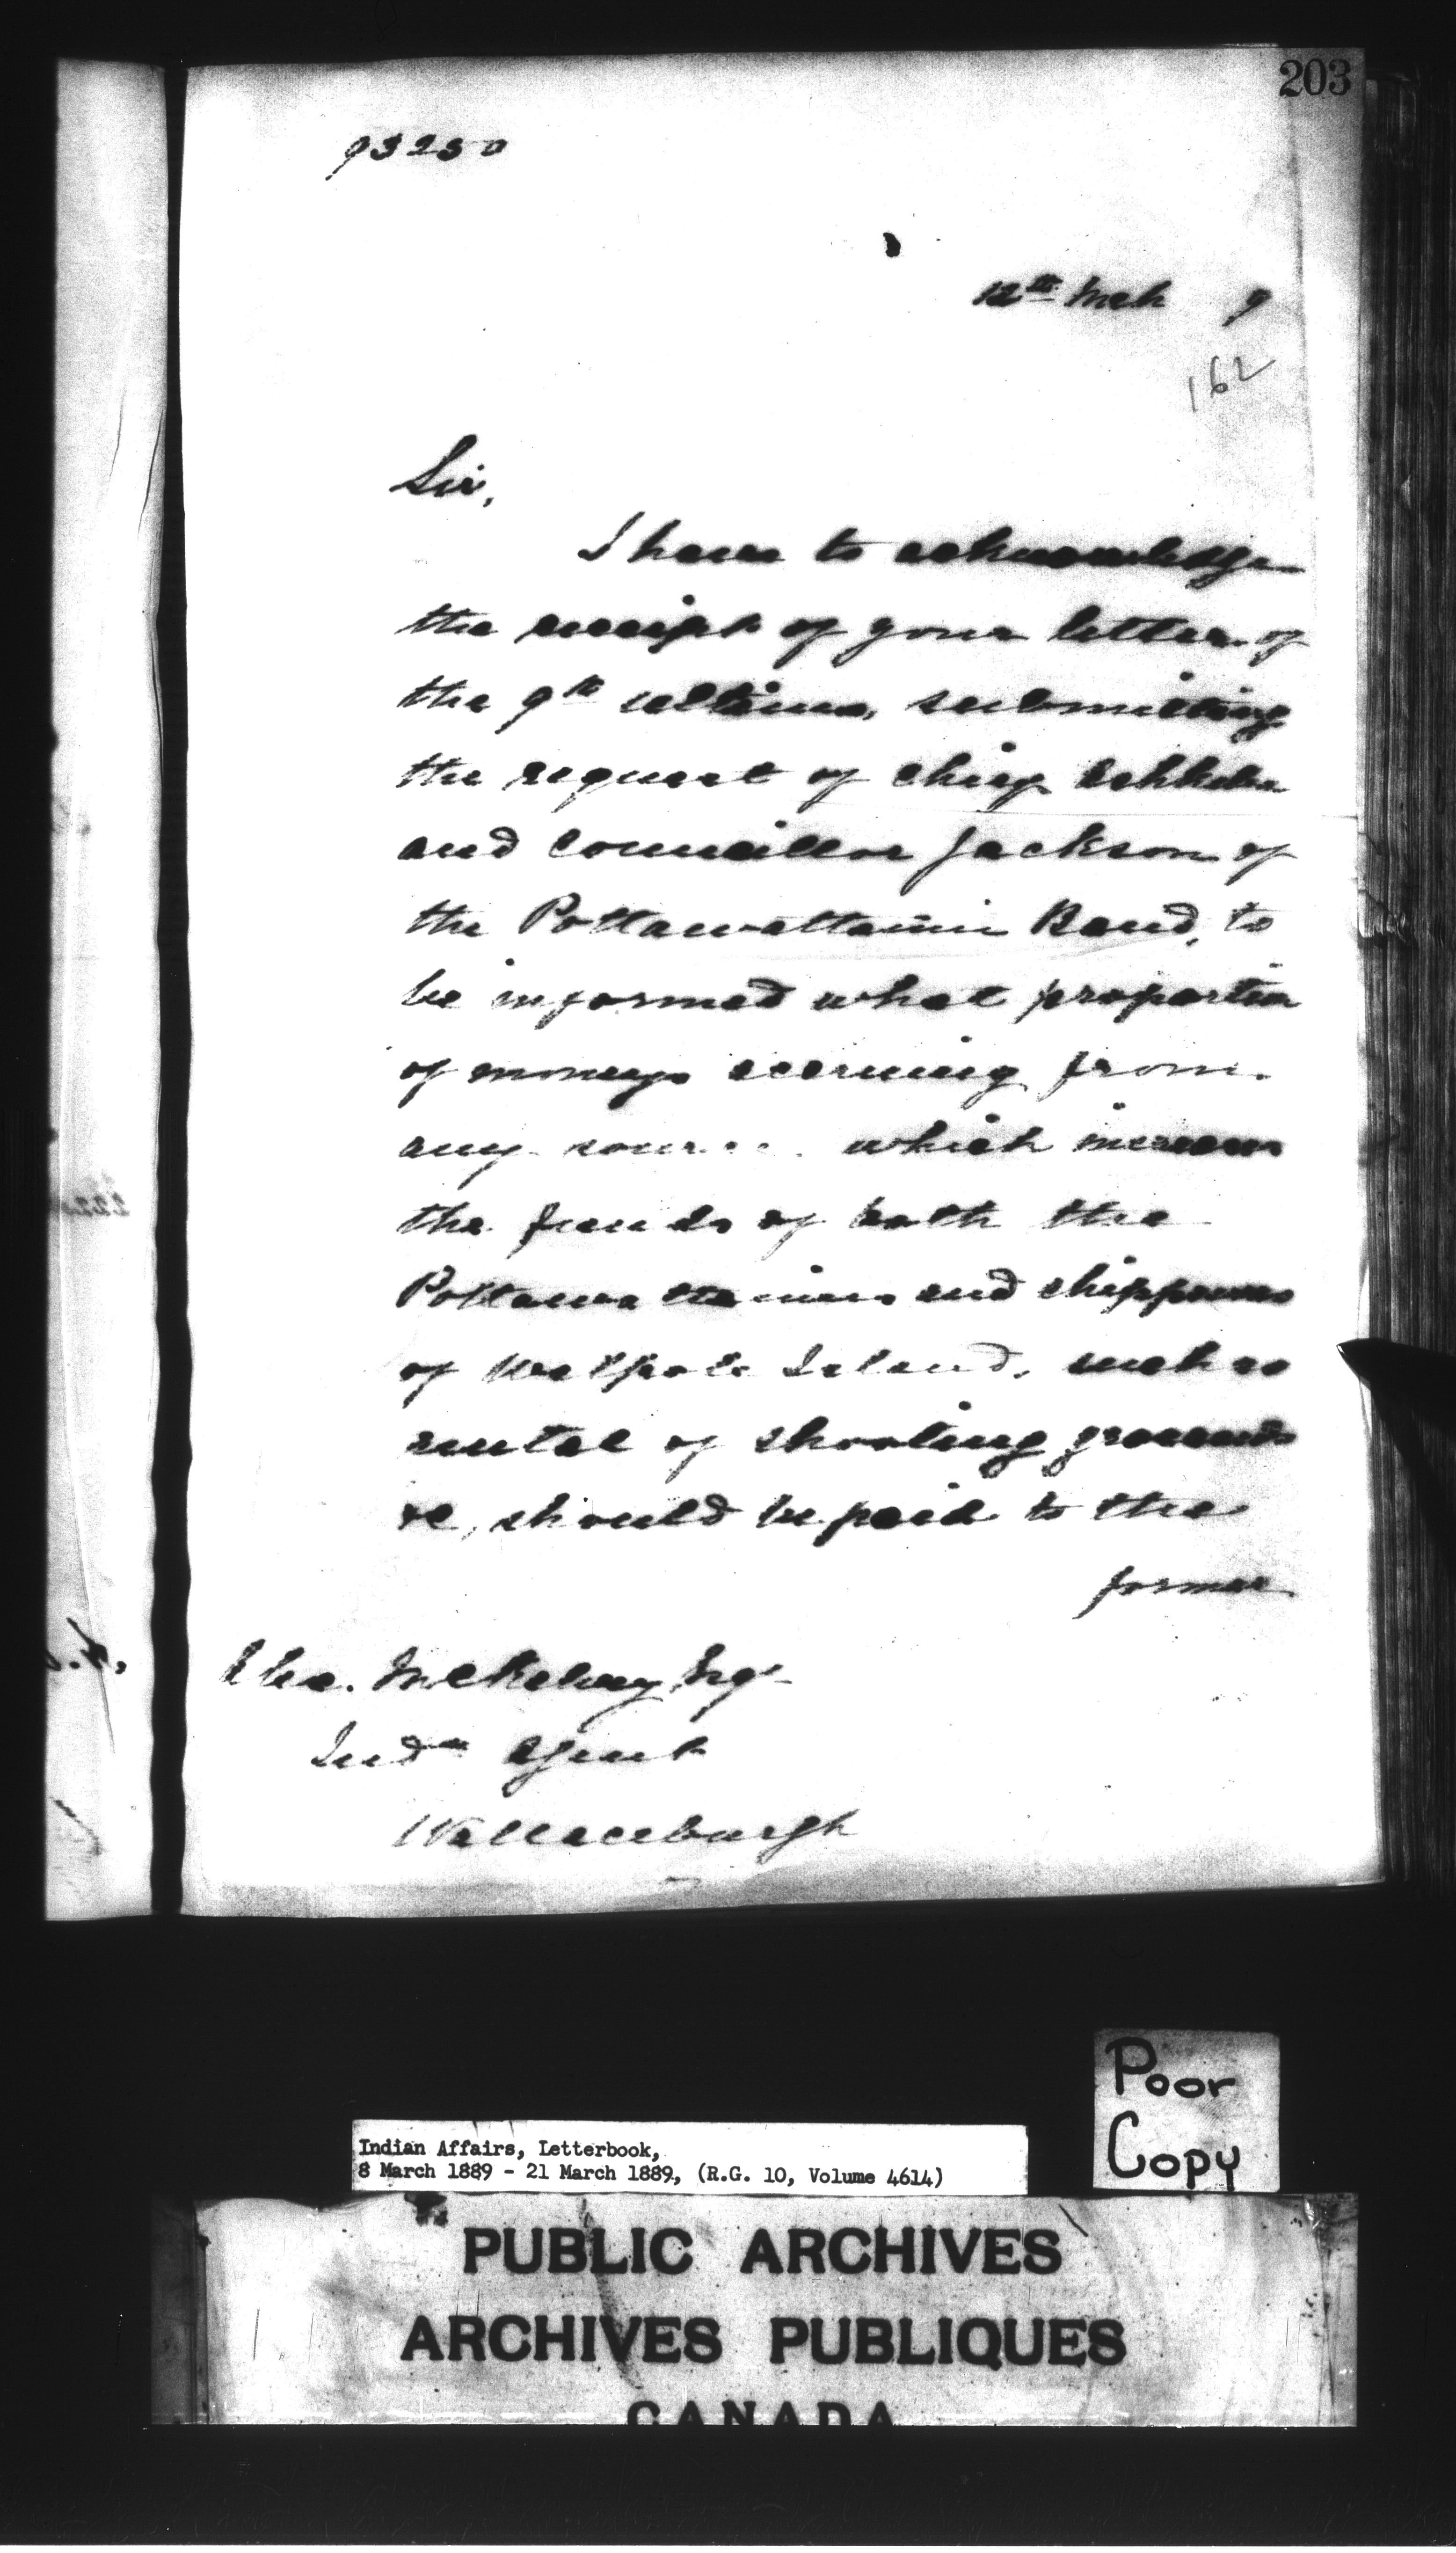 203
93250
12th Mch 9
162
Sir,
I have to acknowledge
the receipt of your letter of
the 9th ultimo, submitting
the request of Chief
and Councillor Jackson of
the Pottawattamie Band, to
be informed what proportion
of moneys accruing from
any source which increases
the funds of both the
Pottawattamies and Chippewas
of Walpole Island, such as
rental of shooting grounds
&c, should be paid to the
former
Alex. McKelvey, Esqr
Indn Agent
Wallaceburgh
Poor
Copy
Indian Affairs, Letterbook,
8 March 1889 - 21 March 1889, (R.G. 10, Volume 4614)
PUBLIC ARCHIVES
ARCHIVES PUBLIQUES
CANADA